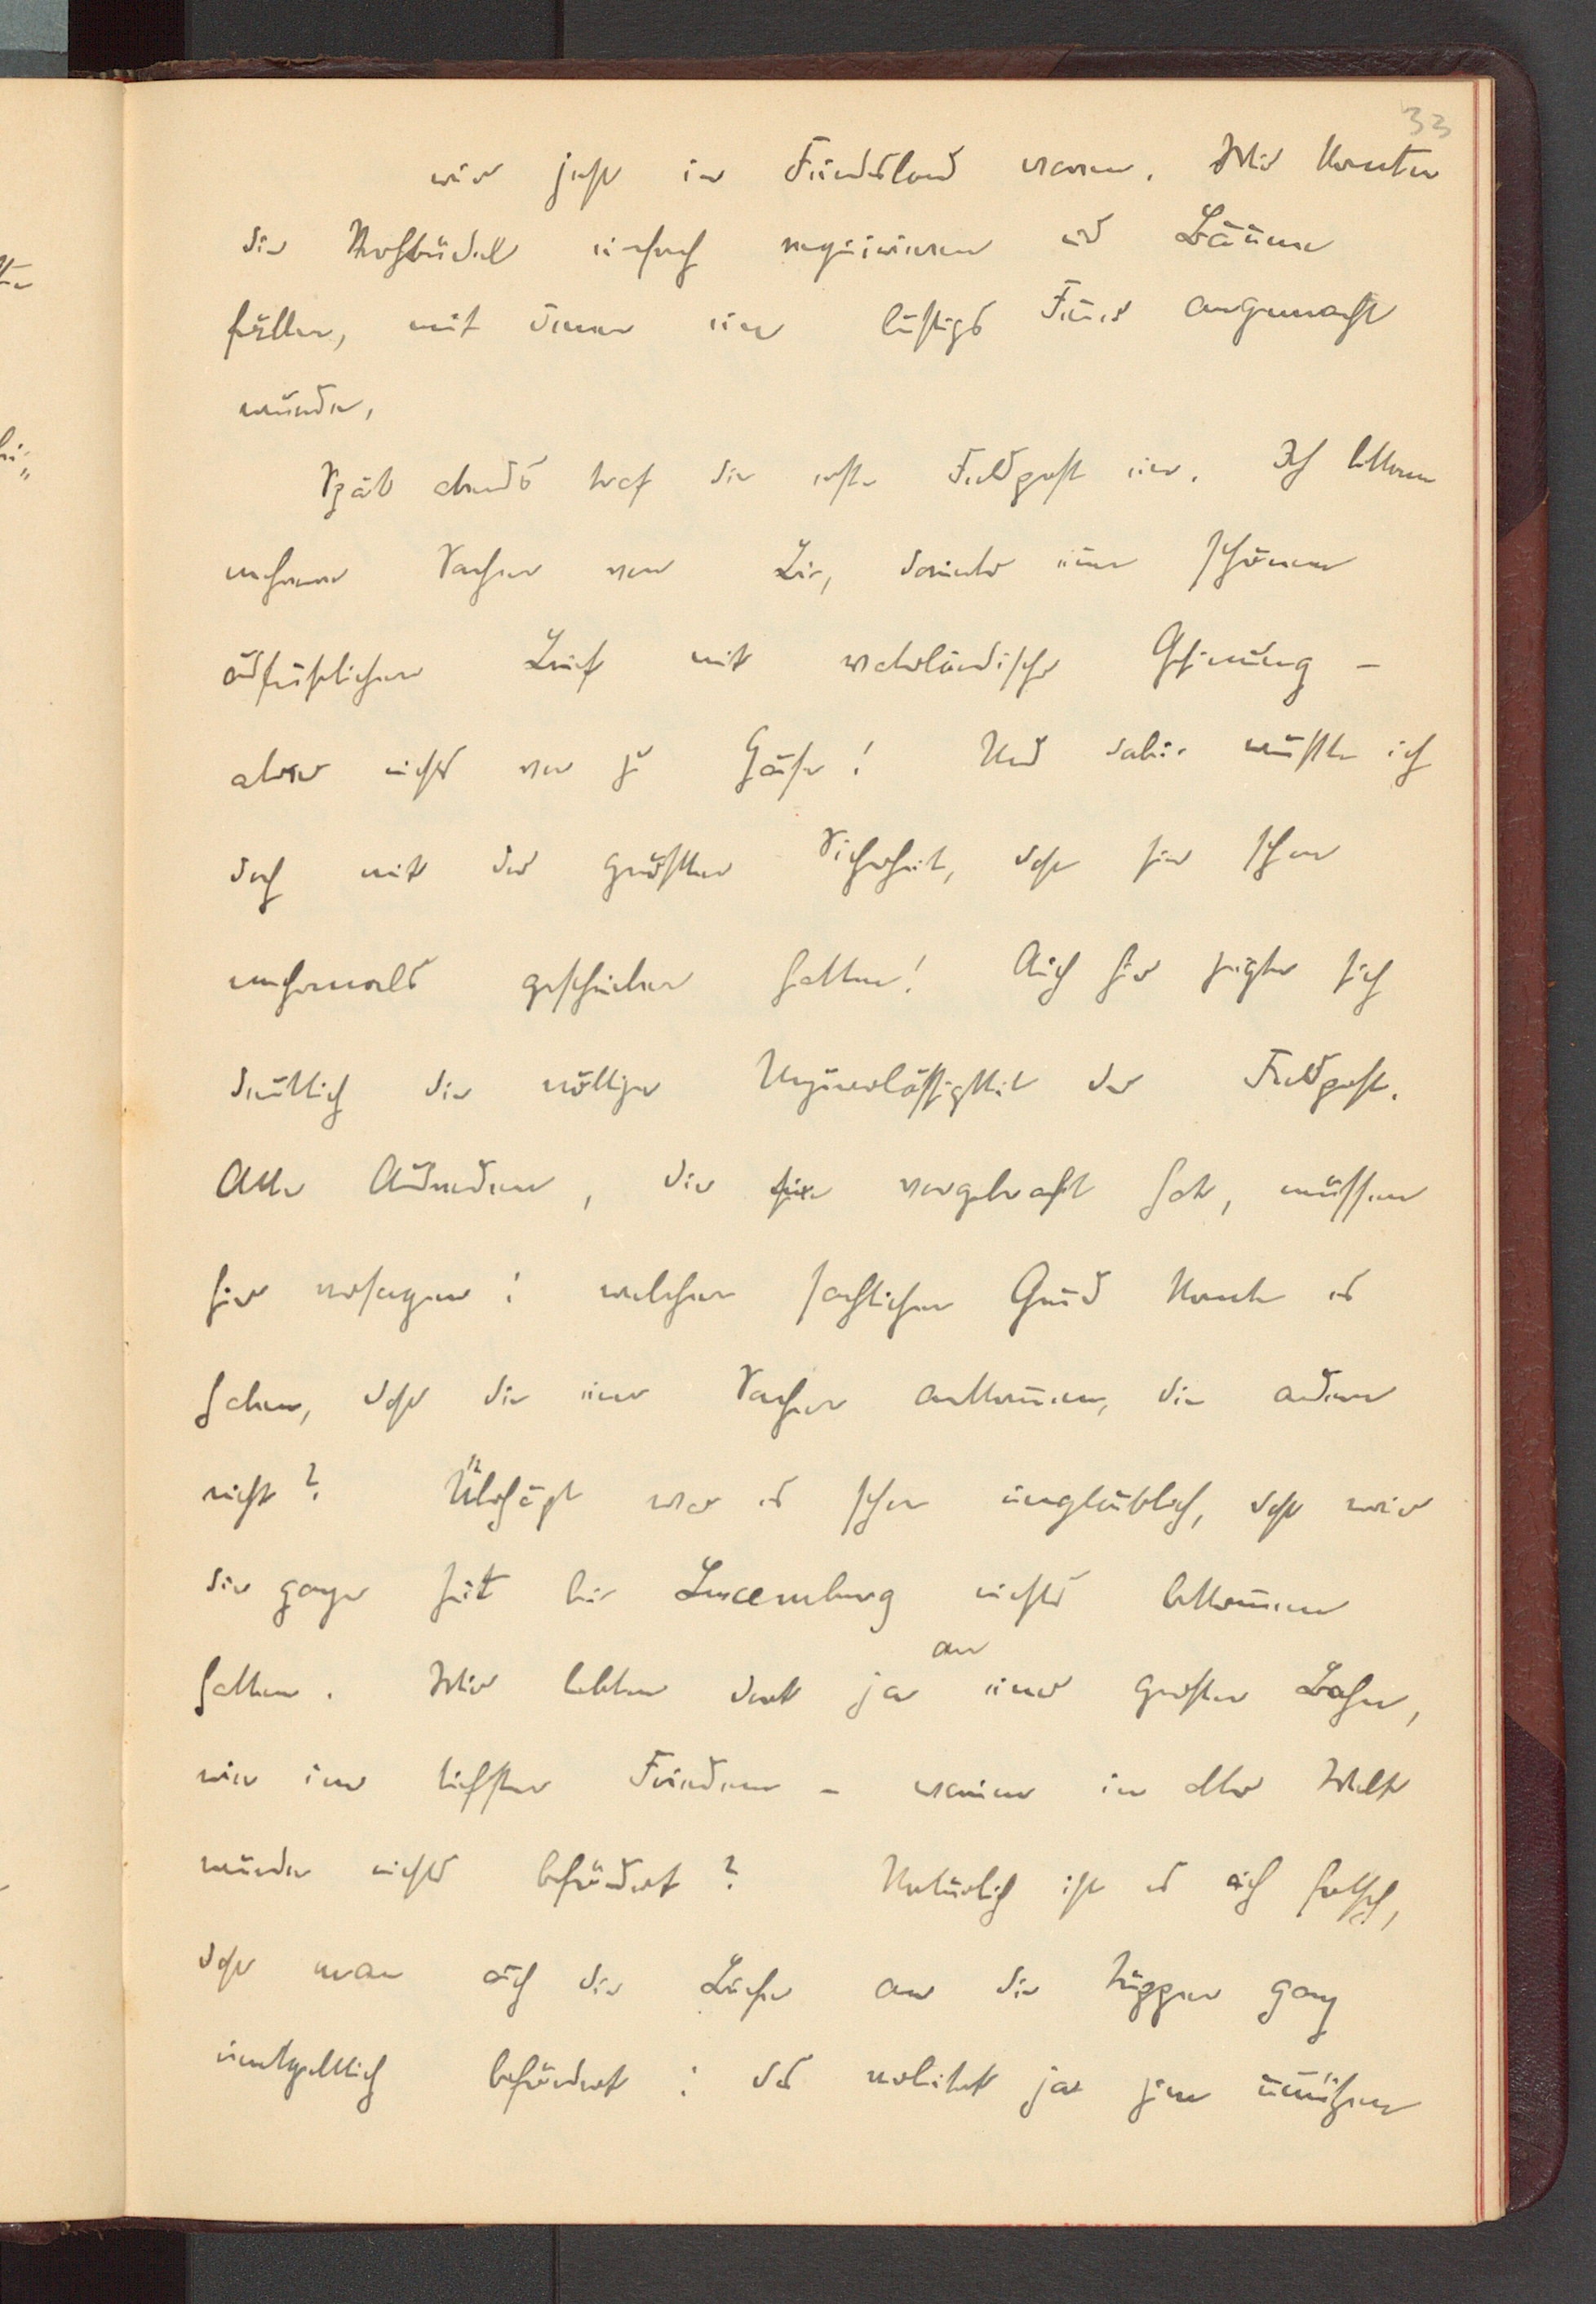 33
wir jetzt in Feindesland waren. Wir konnten
die Strohbündel einfach requirieren und Bäume
fällen, mit denen ein lustiges Feuer angemacht
wurde.
Spät abends traf die erste Feldpost ein. Ich bekam
mehrere Sachen von Lie, darunter einen schönen
ausführlichen Brief mit vaterländischer Gesinnung –
aber nichts von zu Hause! Und dabei wußte ich
doch mit der größten Sicherheit, daß sie schon
mehrmals geschrieben hatten! Auch hier zeigte sich
deutlich die völlige Unzuverlässigkeit der Feldpost.
Alle Ausreden, die sie vorgebracht hat, müssen
hier versagen: welchen sachlichen Grund konnte es
haben, daß die einen Sachen ankommen, die anderen
nicht? Überhaupt war es schon unglaublich, daß wir
die ganze Zeit bei Luxemburg nichts bekommen
hatten. Wir lebten dort ja an einer großen Bahn,
wie im tiefsten Frieden – warum in aller Welt
wurde nichts befördert? Natürlich ist es auch falsch,
daß man auch die Briefe an die Truppen ganz
unentgeltlich befördert: das verleitet ja zum unnützen